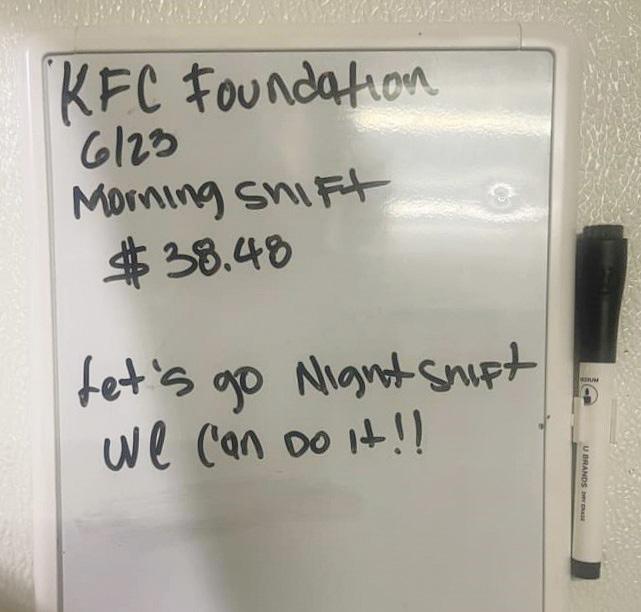 KFC Foundation
6/23
Morning Shift
$38.48
Let's go Night Shift
We Can Do it!!
U BRANDS DRY ERASE